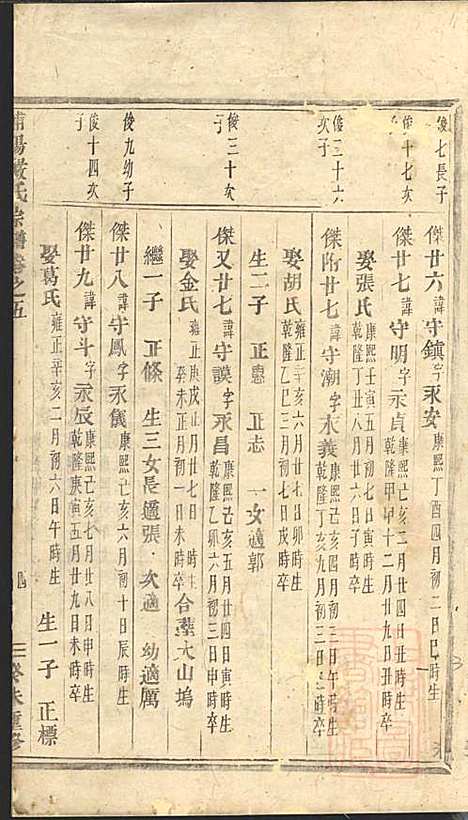 俊七長子
傑廿六諱守鎮字永安康熙丁酉四月初二日巳時生
俊十七次子
傑廿七諱守明字永貞康熙己亥二月廿四日丑時生
乾隆甲申十二月十九日丑時卒
娶張氏康熙壬寅五月初七日寅時生
乾隆丁丑八月廿六日子時卒
俊三十六次子
傑附廿七諱守潮字永義康熙己亥四月初三日亥時生
乾隆丁亥九月廿四日亥時卒
娶胡氏雍正辛亥六月廿七日卯時生
乾隆乙巳三月初三日戌時卒
生二子 正惠 正志 一女適郭
俊三十次子
傑又廿七諱守謨字永昌康熙己亥五月廿四日寅時生
乾隆乙卯六月初三日寅時卒
娶金氏雍正庚戌四月廿七日時生
癸未正月初一日未時卒
合塟大山塢
繼一子 正條 生三女長適張 次適 幼適厲
俊九幼子
傑廿八諱守鳳字永儀康熙己亥六月初十日辰時生
俊十四次子
傑廿九諱守斗字永辰康熙己亥七月廿八日申時生
乾隆庚寅五月廿九日未時卒
娶葛氏雍正辛亥二月初六日午時生
生一子 正標
浦陽嚴氏宗譜卷之五
癸未重修